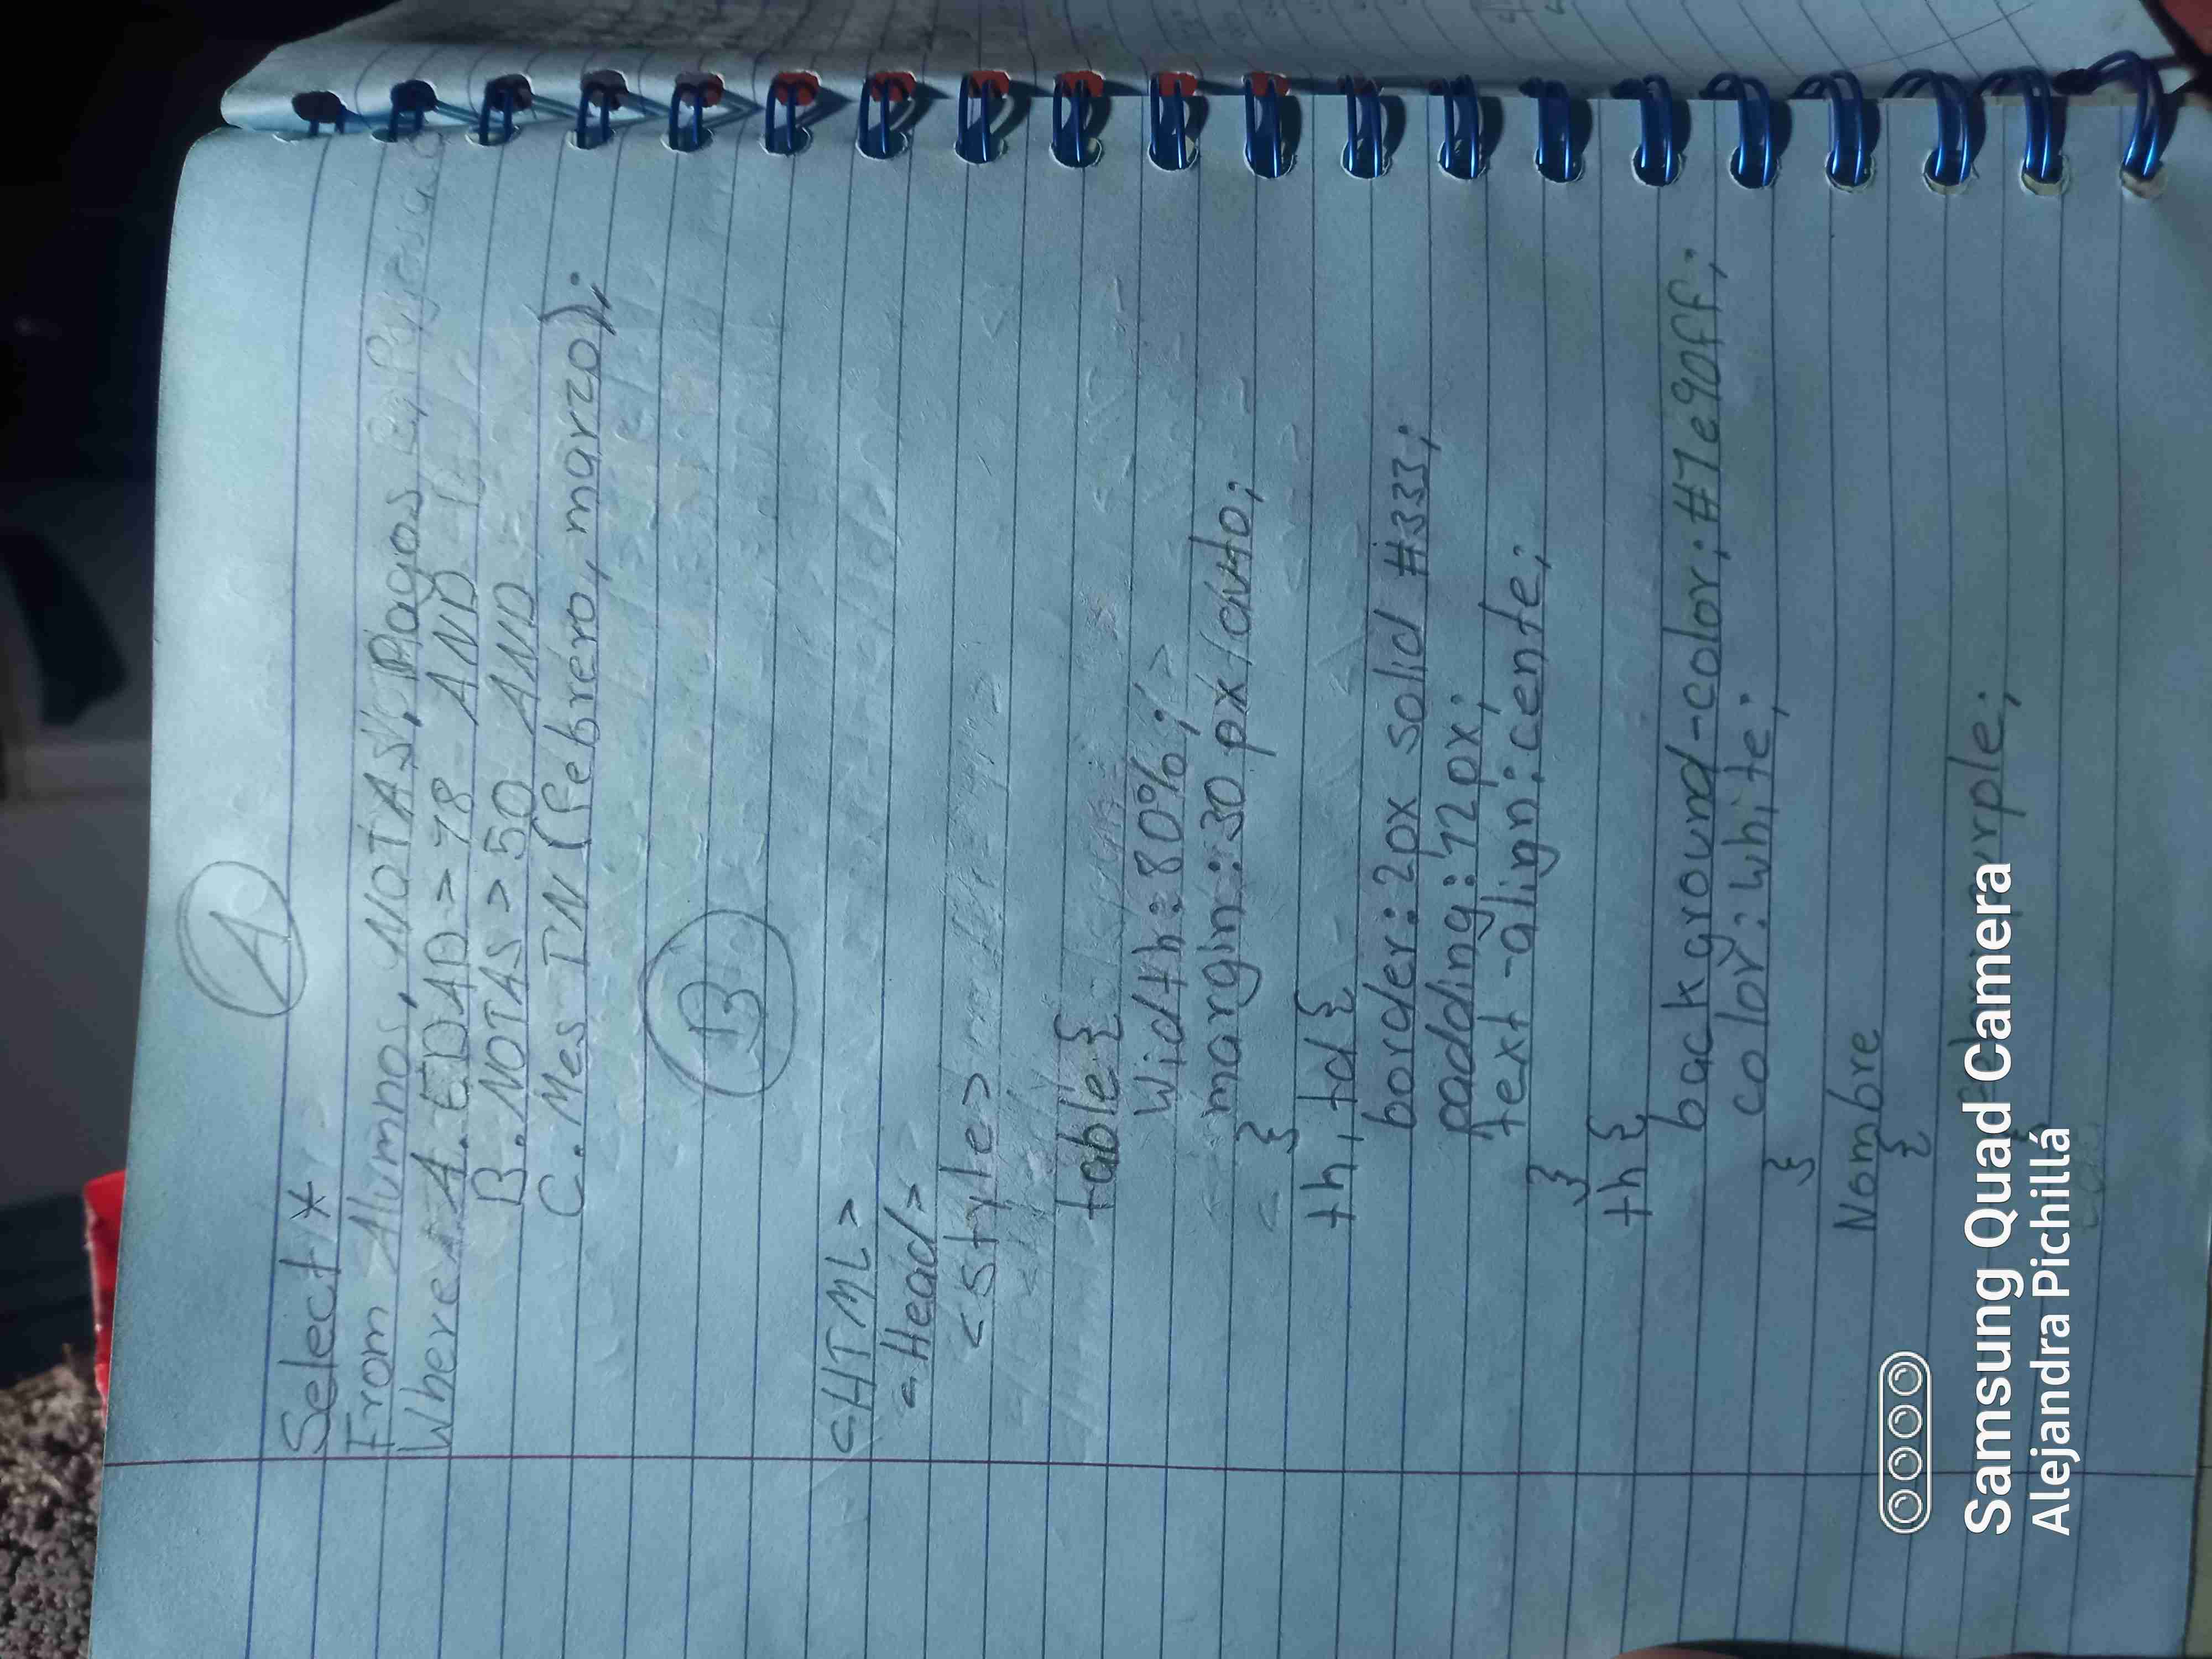 A
Select *
From Alumnos, NOTAS, Pagos
Where A.EDAD > 18 AND
B.NOTAS > 50 AND
C.Mes IN (Febrero, marzo);
B
<HTML>
<Head>
<style>
table{
Width: 80%;
margin: 30px/auto;
}
th, td {
border: 2px solid #333;
padding: 12px;
text-align: cente;
}
th {
background-color: #1e90ff;
color: white;
}
Nombre
{
rple;
Samsung Quad Camera
Alejandra Pichillá